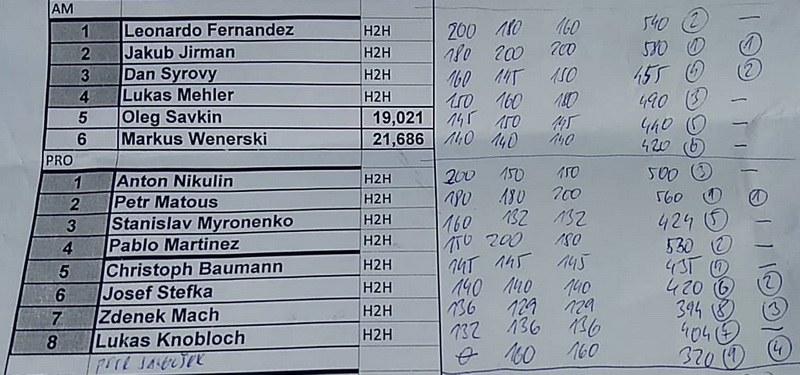 AM
1 Leonardo Fernandez H2H 200 180 160 540 2 —
2 Jakub Jirman H2H 180 200 200 580 1 1
3 Dan Syrovy H2H 160 145 150 455 4 2
4 Lukas Mehler H2H 150 160 180 490 3 —
5 Oleg Savkin 19,021 145 150 145 440 5 —
6 Markus Wenerski 21,686 140 140 140 420 6 —
PRO
1 Anton Nikulin H2H 200 150 150 500 3 —
2 Petr Matous H2H 180 180 200 560 1 1
3 Stanislav Myronenko H2H 160 132 132 424 5 —
4 Pablo Martinez H2H 150 200 180 530 2 —
5 Christoph Baumann H2H 145 145 145 435 4 —
6 Josef Stefka H2H 140 140 140 420 6 2
7 Zdenek Mach H2H 136 129 129 394 8 3
8 Lukas Knobloch H2H 132 136 136 404 7 —
PETR 0 160 160 320 9 4